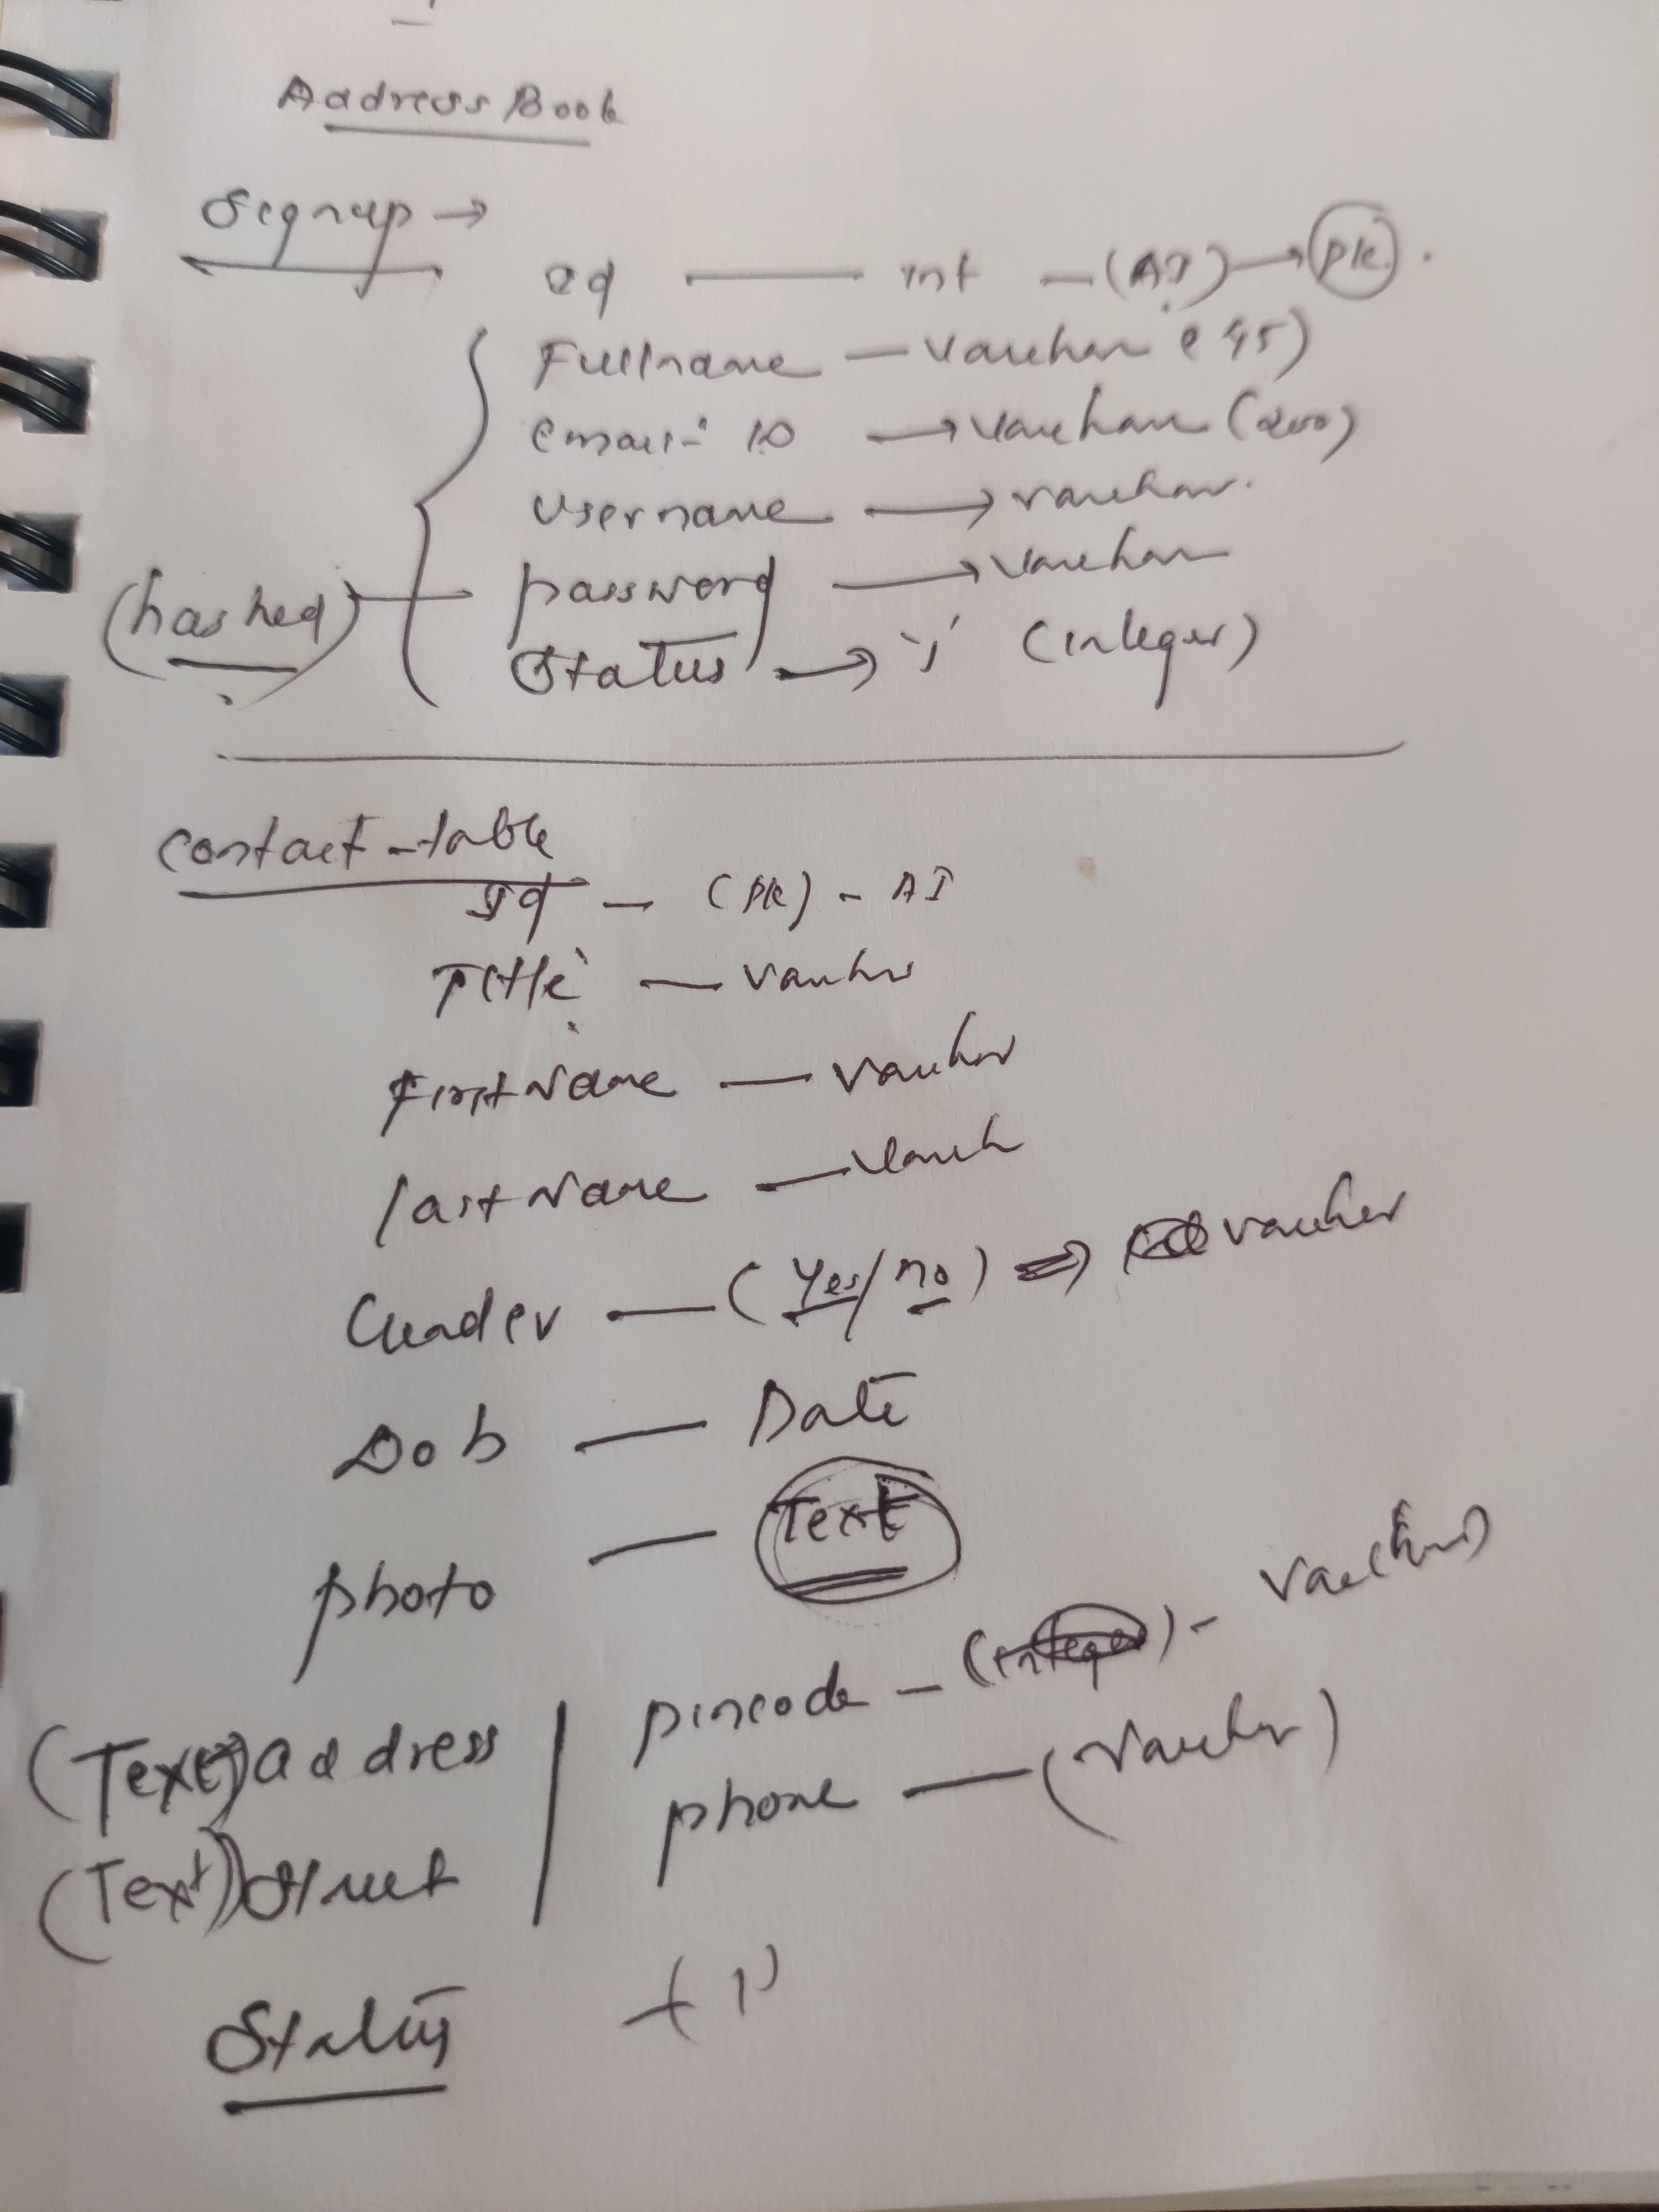 Address Book
Signup →
id — int — (AI) → PK.
Fullname — varchar (45)
email ID → varchar (200)
Username → varchar.
(hashed) password → varchar
Status → '1' (integer)
contact-table
Id — (PK) - AI
Title — varchar
FirstName — varchar
lastName — varch
Gender — (Yes/no) ⇒ varchar
Dob — Date
photo — Text
pincode — (integer) - varchar
(Text) address
phone — (varchar)
(Text) Street
Status - (1)